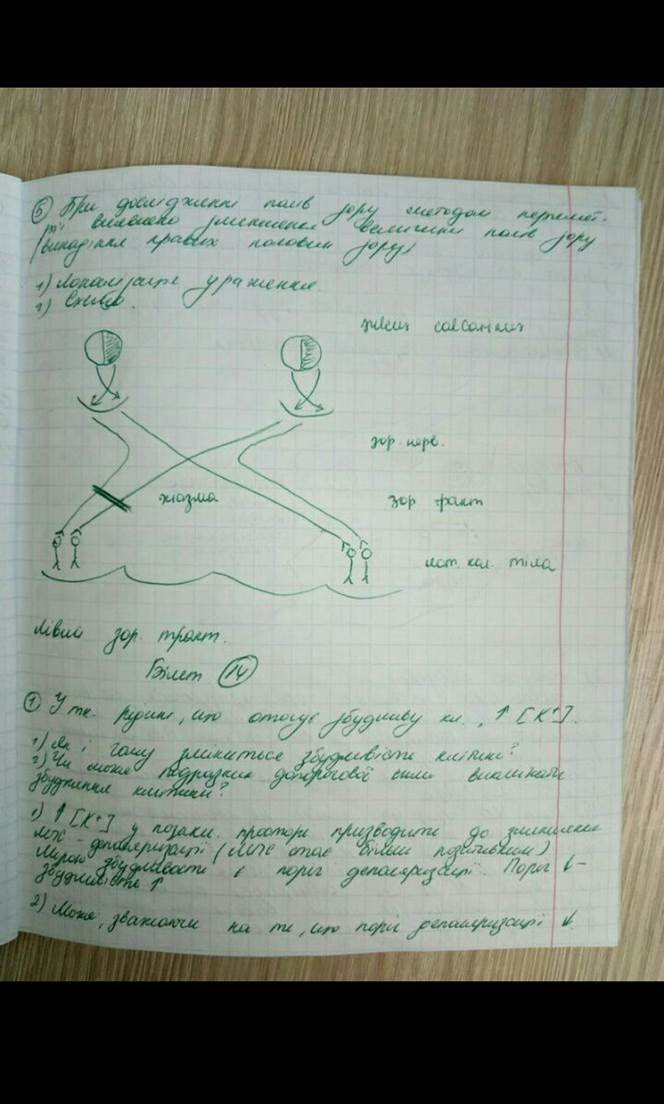 ⑤ При дослідженні полів зору методом перимет-
рії виявлено зменшення величини полів зору
(випадіння правих половин зору)
1) Локалізація ураження.
2) Схема.
зор. нерв.
хіазма
зор тракт
лат. кол. тіла
Лівий зор. тракт.
Білет ⑭
① У тк. рідині, що омиває збудливу кл., ↑ [K⁺].
1) Як і чому зміниться збудливість клітини?
2) Чи може подразник допорогової сили викликати
збудження клітини?
1) ↑ [K⁺] у позакл. просторі призводить до зменшення
МПС - деполяризації (МПС стає більш позитивним)
Мірою збудливості є поріг деполяризації. Поріг ↓ -
збудливість ↑
2) Може, зважаючи на те, що поріг деполяризації ↓.